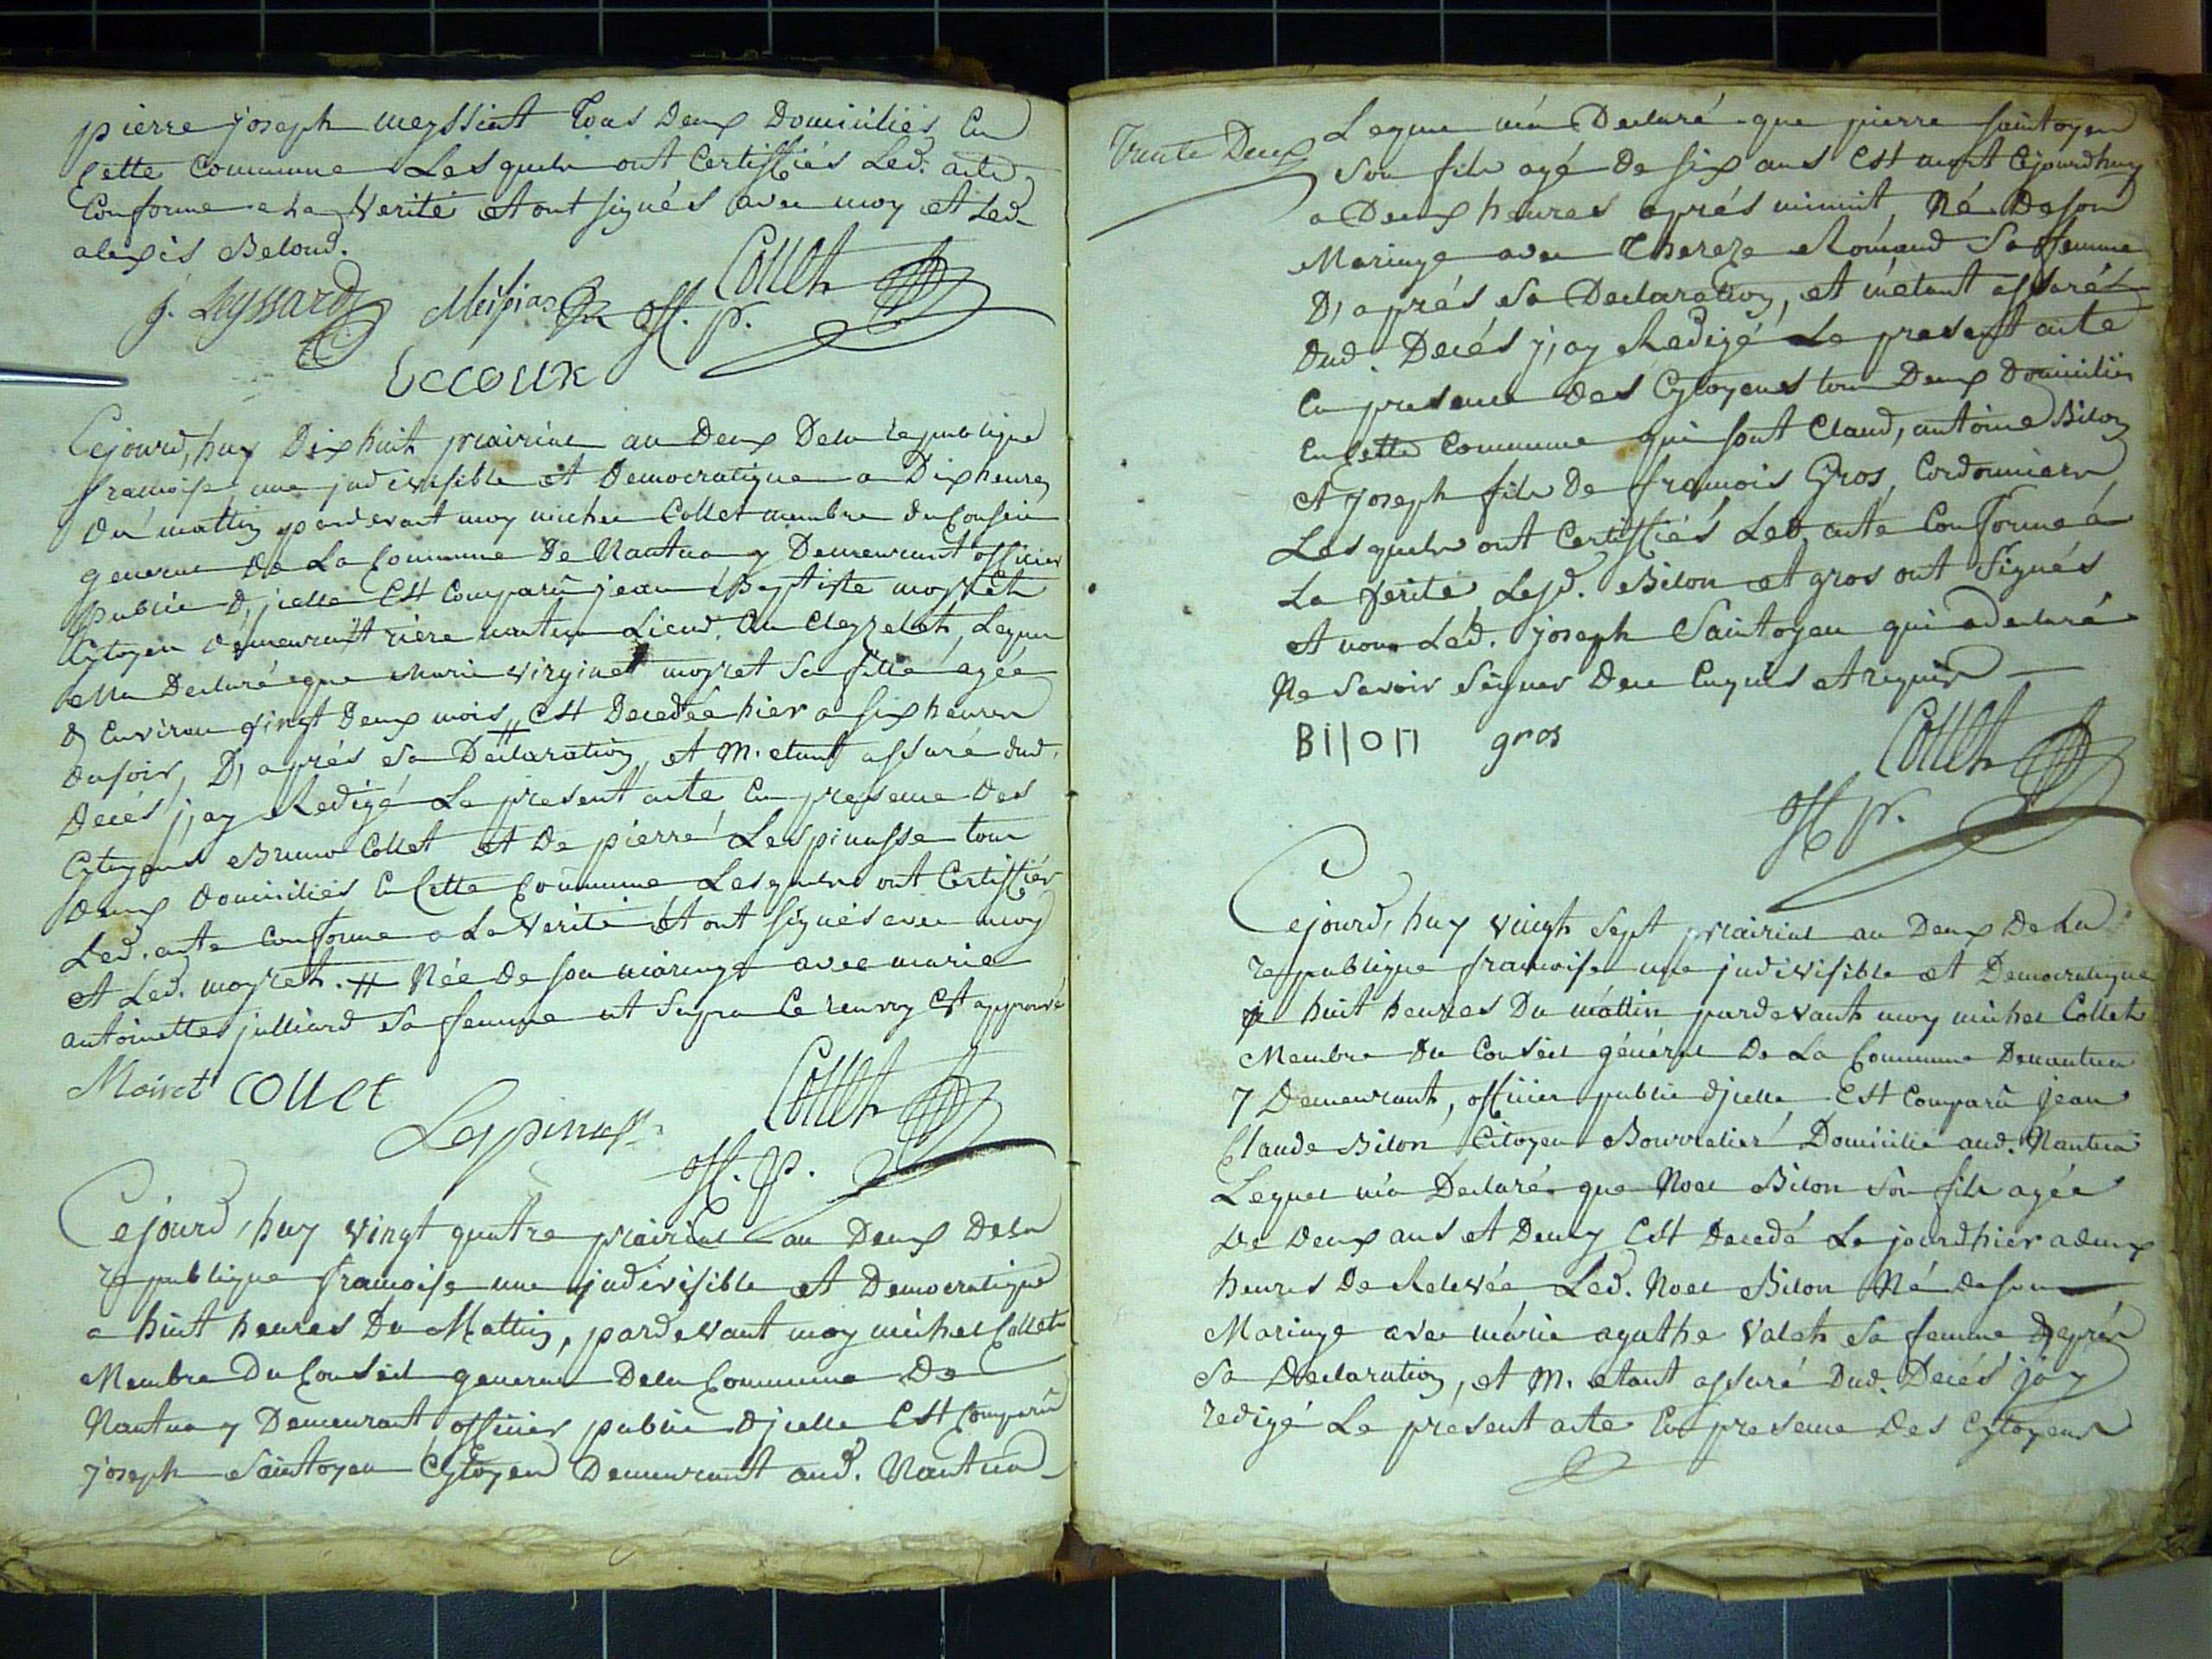 pierre joseph meyssiat Tous Deux Domiciliés En
Cette Commune Lesquels ont Certiffiés Led. acte
Conforme a La Verité et ont signés avec moy et Led.
alexis Beloud.
j. Leyssard Collet
off. p.
Cejourd,huy Dix huit prairial an Deux Dela republique
francoise une jndivisible et Democratique a Dix heures
du mattin pardevant moy michel Collet membre du Conseil
general De La Commune De Nantua y Demeurant officier
public D,jcelle Est Comparû jean Baptiste moyret
Cytoyen demeurant riere nantua Lieud. Lequel
m'a Declaré que marie virginet moyret sa fille agée
D Environ vingt Deux mois # Est Decedée hier a six heures
du soir, D, aprés sa Declaration, et m. etant assuré dud.
Decés j,ay Redigé Le present acte En presence Des
Cytoyens Bruno Collet et De pierre Lespinasse tous
deux domiciliés En Cette Commune Lesquels ont Certiffiés
Led. acte Conforme a La Verité et ont signés avec moy
et Led. moyret. # Née De son mariage avec marie
antoinette julliard sa femme ut supra Ce renvoy Est approuvé
Moiret Collet
Lespinasse Collet
off. p.
Cejourd,huy vingt quatre prairial an Deux Dela
republique francoise une jndivisible et Democratique
a huit heures Du Mattin, pardevant moy michel Collet
Membre Du Conseil general Dela Commune De
Nantua y Demeurant officier public Djcelle Est Comparû
joseph Saintoyen Cytoyen Demeurant aud. Nantua
Trente Deux
Lequel m'a Declaré que pierre saintoyen
son fils agé de six ans Est mort Cejourdhuy
a Deux heures aprés minuit, Né De son
Mariage avec Thereze Romand Sa femme
D, aprés sa Declaration, et m'etant assuré
dud. Decés j,ay Redigé Le present acte
En presence des Cytoyens tous Deux domiciliés
En Cette Commune qui sont Claud, antoine Bilon
et joseph fils De francois Gros, Cordonniers
Lesquels ont Certiffiés Led. acte Conforme a
La verité, Lesd. Bilon et gros ont signés
et non Led. joseph Saintoyen qui a declaré
Ne savoir signer De ce Enquis et requis
Billon gros
Collet
off p.
Cejourd,huy vingt sept prairial an Deux De La
republique francoise une jndivisible et Democratique
a huit heures Du mattin pardevant moy michel Collet
Membre Du Conseil général De La Commune Denantua
y Demeurant, officier public djcelle Est Comparû jean
Claude Bilon Citoyen Bourrelier Domicilié aud. Nantua
Lequel m'a Declaré que Noel Bilon son fils agée
De deux ans et Demy Est Decedé Le jourdhier a deux
heures De Relevée Led. Noel Bilon Né De son
Mariage avec marie agathe Valet sa femme D,aprés
sa Declaration, et m. etant assuré Dud. Decés j'ay
redigé Le present acte En presence Des Cytoyens